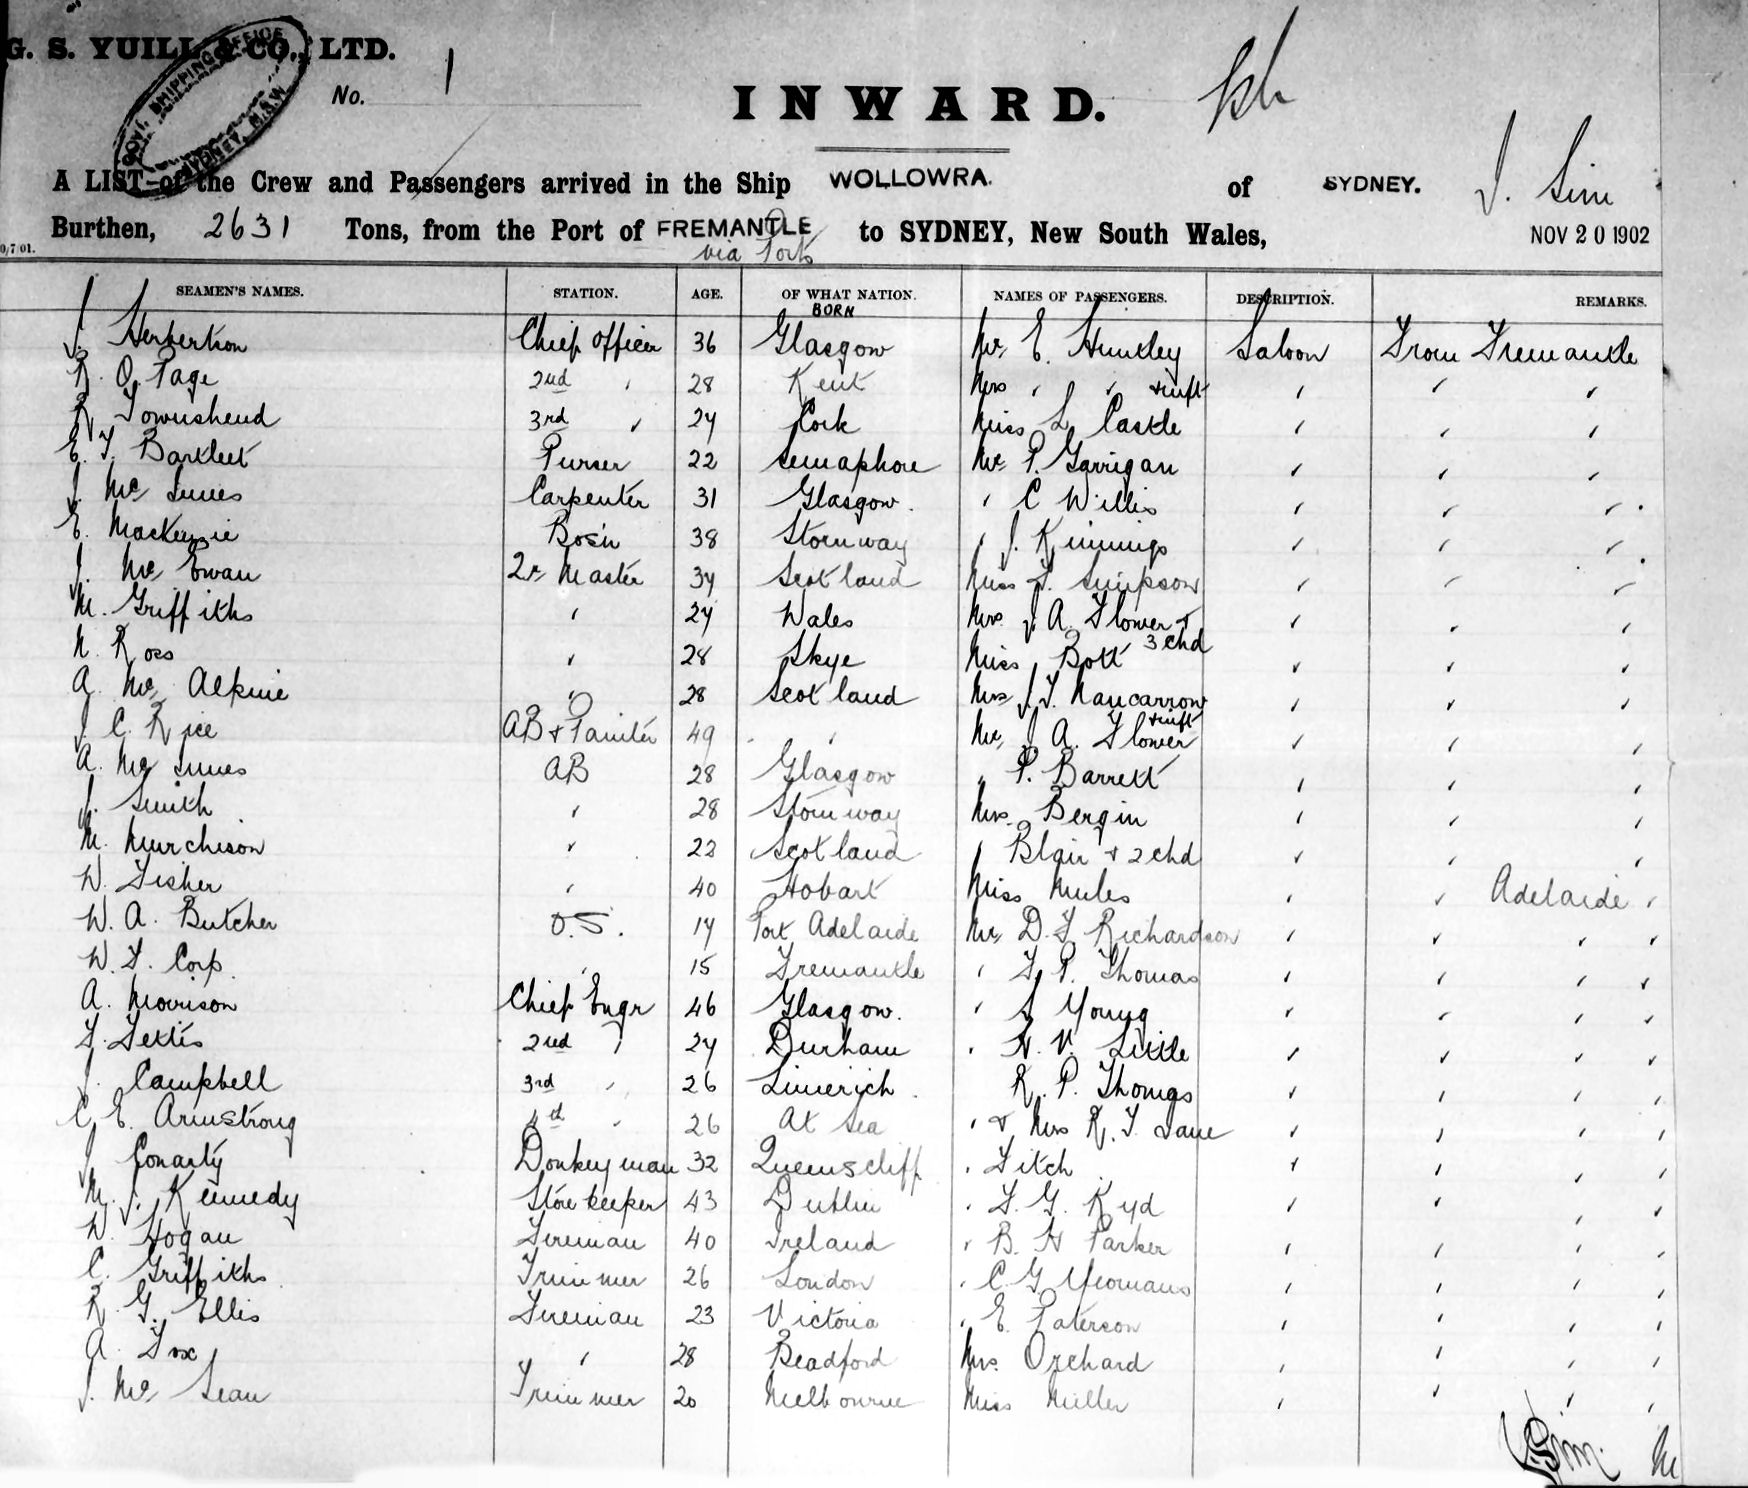 G. S. YUILL & CO., LTD.
GOVT. SHIPPING OFFICE SYDNEY, N.S.W.
No. 1
INWARD.
A LIST of the Crew and Passengers arrived in the Ship WOLLOWRA. of SYDNEY. J. Sim
Burthen, 2631 Tons, from the Port of FREMANTLE to SYDNEY, New South Wales, NOV 20 1902
via Ports
0/7/01.
SEAMEN'S NAMES. STATION. AGE. OF WHAT NATION. NAMES OF PASSENGERS. DESCRIPTION. REMARKS.
BORN
J. Herbertson Chief Officer 36 Glasgow Mr. E. Huntley Saloon From Fremantle
R. O. Page 2nd " 28 Kent Mrs " " & inft " " "
R. Townshend 3rd " 24 Cork Miss L Castle " " "
E. T. Bartleet Purser 22 Semaphore Mr. P. Garrigan " " "
J. Mc Innes Carpenter 31 Glasgow. " C Willis " " "
E. Mackenzie Bos'n 38 Stornway " J. Kinnings " " "
J. Mc Ewan Qr Master 34 Scotland Miss Simpson " " "
M. Griffiths " 24 Wales Mrs. J A. Flower & " " "
3 chd
N. Ross " 28 Skye Miss J Bott " " "
A. Mc Alpine " 28 Scotland Mrs J. T. Nancarrow " " "
& inft
J. C. Rice AB & Painter 49 " Mr. J A. Flower " " "
A. Mc Innes AB 28 Glasgow " P. Barrett " " "
J. Smith " 28 Stornway Mrs. Bergin " " "
M. Murchison " 22 Scotland " Blair & 2 chd " " "
W. Fisher " 40 Hobart Miss Mules " " Adelaide "
W. A. Butcher O.S. 17 Port Adelaide Mr. D. F Richardson " " " "
W. F. Corp. " 15 Fremantle " F. P. Thomas " " " "
A. Morrison Chief Engr 46 Glasgow. " S Young " " " "
F. Fettis 2nd " 24 Durham " H. V. Little " " " "
J. Campbell 3rd " 26 Limerich. R. P. Thomas " " " "
C E. Armstrong 4th " 26 At Sea " & Mrs R. F. Lane " " " "
J Conarty Donkeyman 32 Queenscliff " Fitch " " " "
M. J. Kennedy Storekeeper 43 Dublin " F. G. Kyd " " " "
W. Hogan Fireman 40 Ireland " B. H Parker " " " "
C. Griffiths Trimmer 26 London " C. G Yeomans " " " "
R. G. Ellis Fireman 23 Victoria " E. Paterson " " " "
A. Fox " 28 Beadford Mrs. Orchard " " " "
J. Mc Lean Trimmer 20 Melbourne Miss Miller " " " "
J. Sim. M